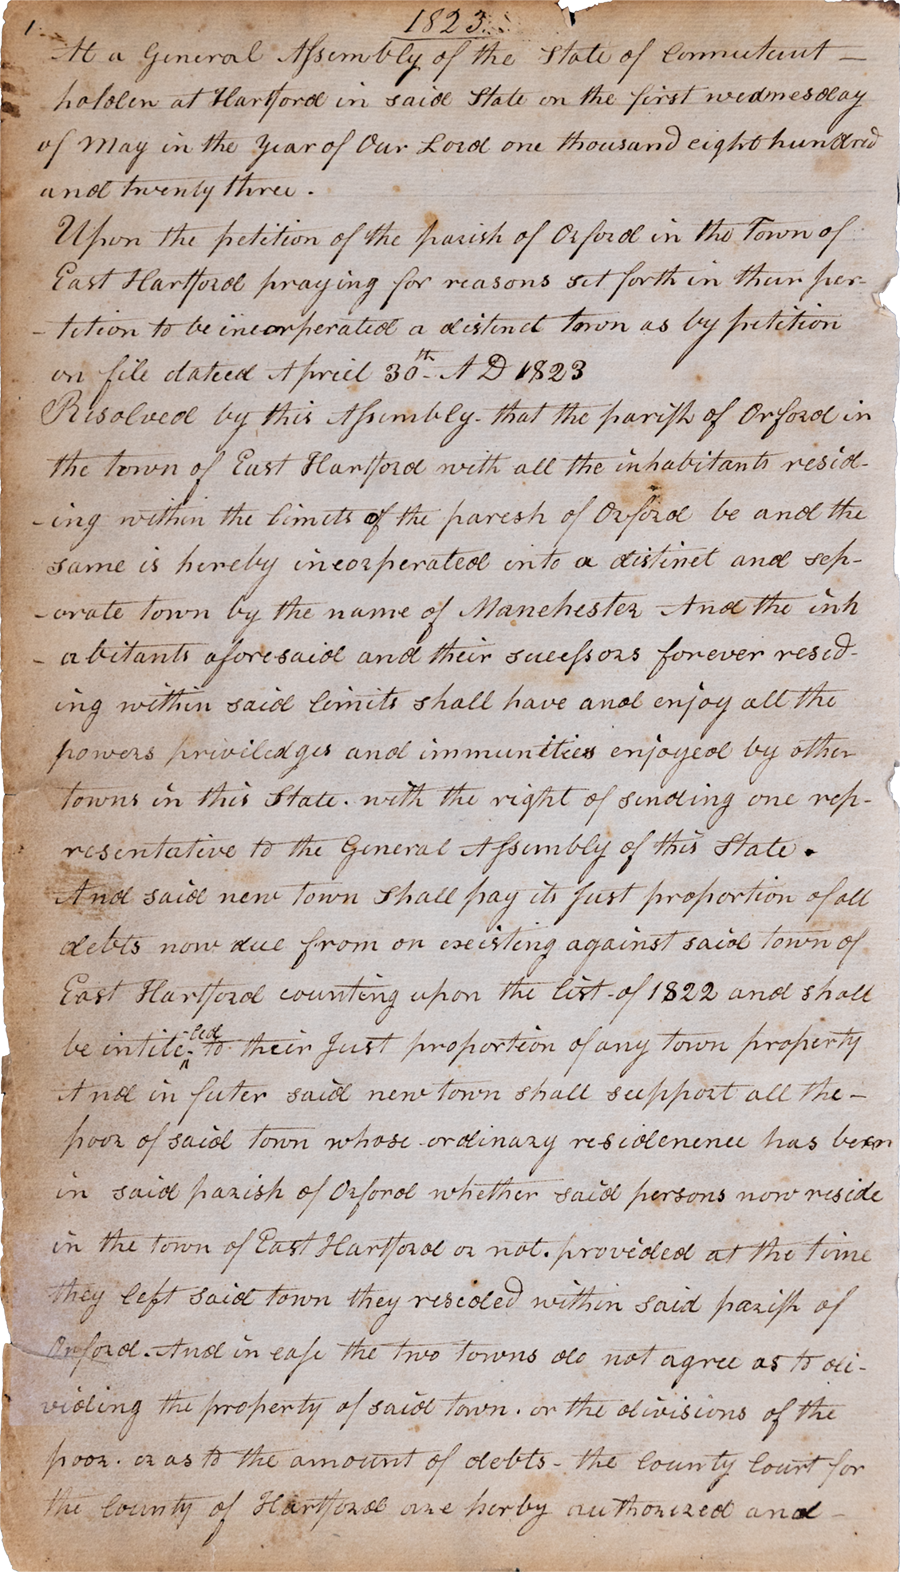 1823.
1.
At a General Assembly of the State of Connecticut —
holden at Hartford in said State on the first wednesday
of May in the year of Our Lord one thousand eight hundred
and twenty three .
Upon the petition of the parish of Orford in the Town of
East Hartford praying for reasons set forth in their per-
-tition to be incorperated a distinct town as by petition
on file dated Apriel 30th- A D 1823
Resolved by this Assembly- that the parish of Orford in
the town of East Hartford with all the inhabitants resid-
-ing within the limits of the paresh of Orford be and the
same is hereby incorperated into a distinct and sep-
-erate town by the name of Manchester And the inh
-abitants aforesaid and their sucessors forever resid-
ing within said limits shall have and enjoy all the
powers priviledges and immunities enjoyed by other
towns in this State. with the right of sending one rep-
resentative to the General Assembly of this State.
And said new town shall pay its Just proportion of all
debts now due from on existing against said town of
East Hartford counting upon the list-of 1822 and shall
be intitc-led to their Just proportion of any town property
And in futer said new town shall support all the-
poor of said town whose ordinary residenence has been
in said parish of Orford whether said persons now reside
in the town of East Hartford or not. provided at the time
they left said town they resided within said parish of
Orford. And in case the two towns do not agree as to di-
viding the property of said town. or the divisions of the
poor. or as to the amount of debts- the County Court for
the County of Hartford are herby authorized and -